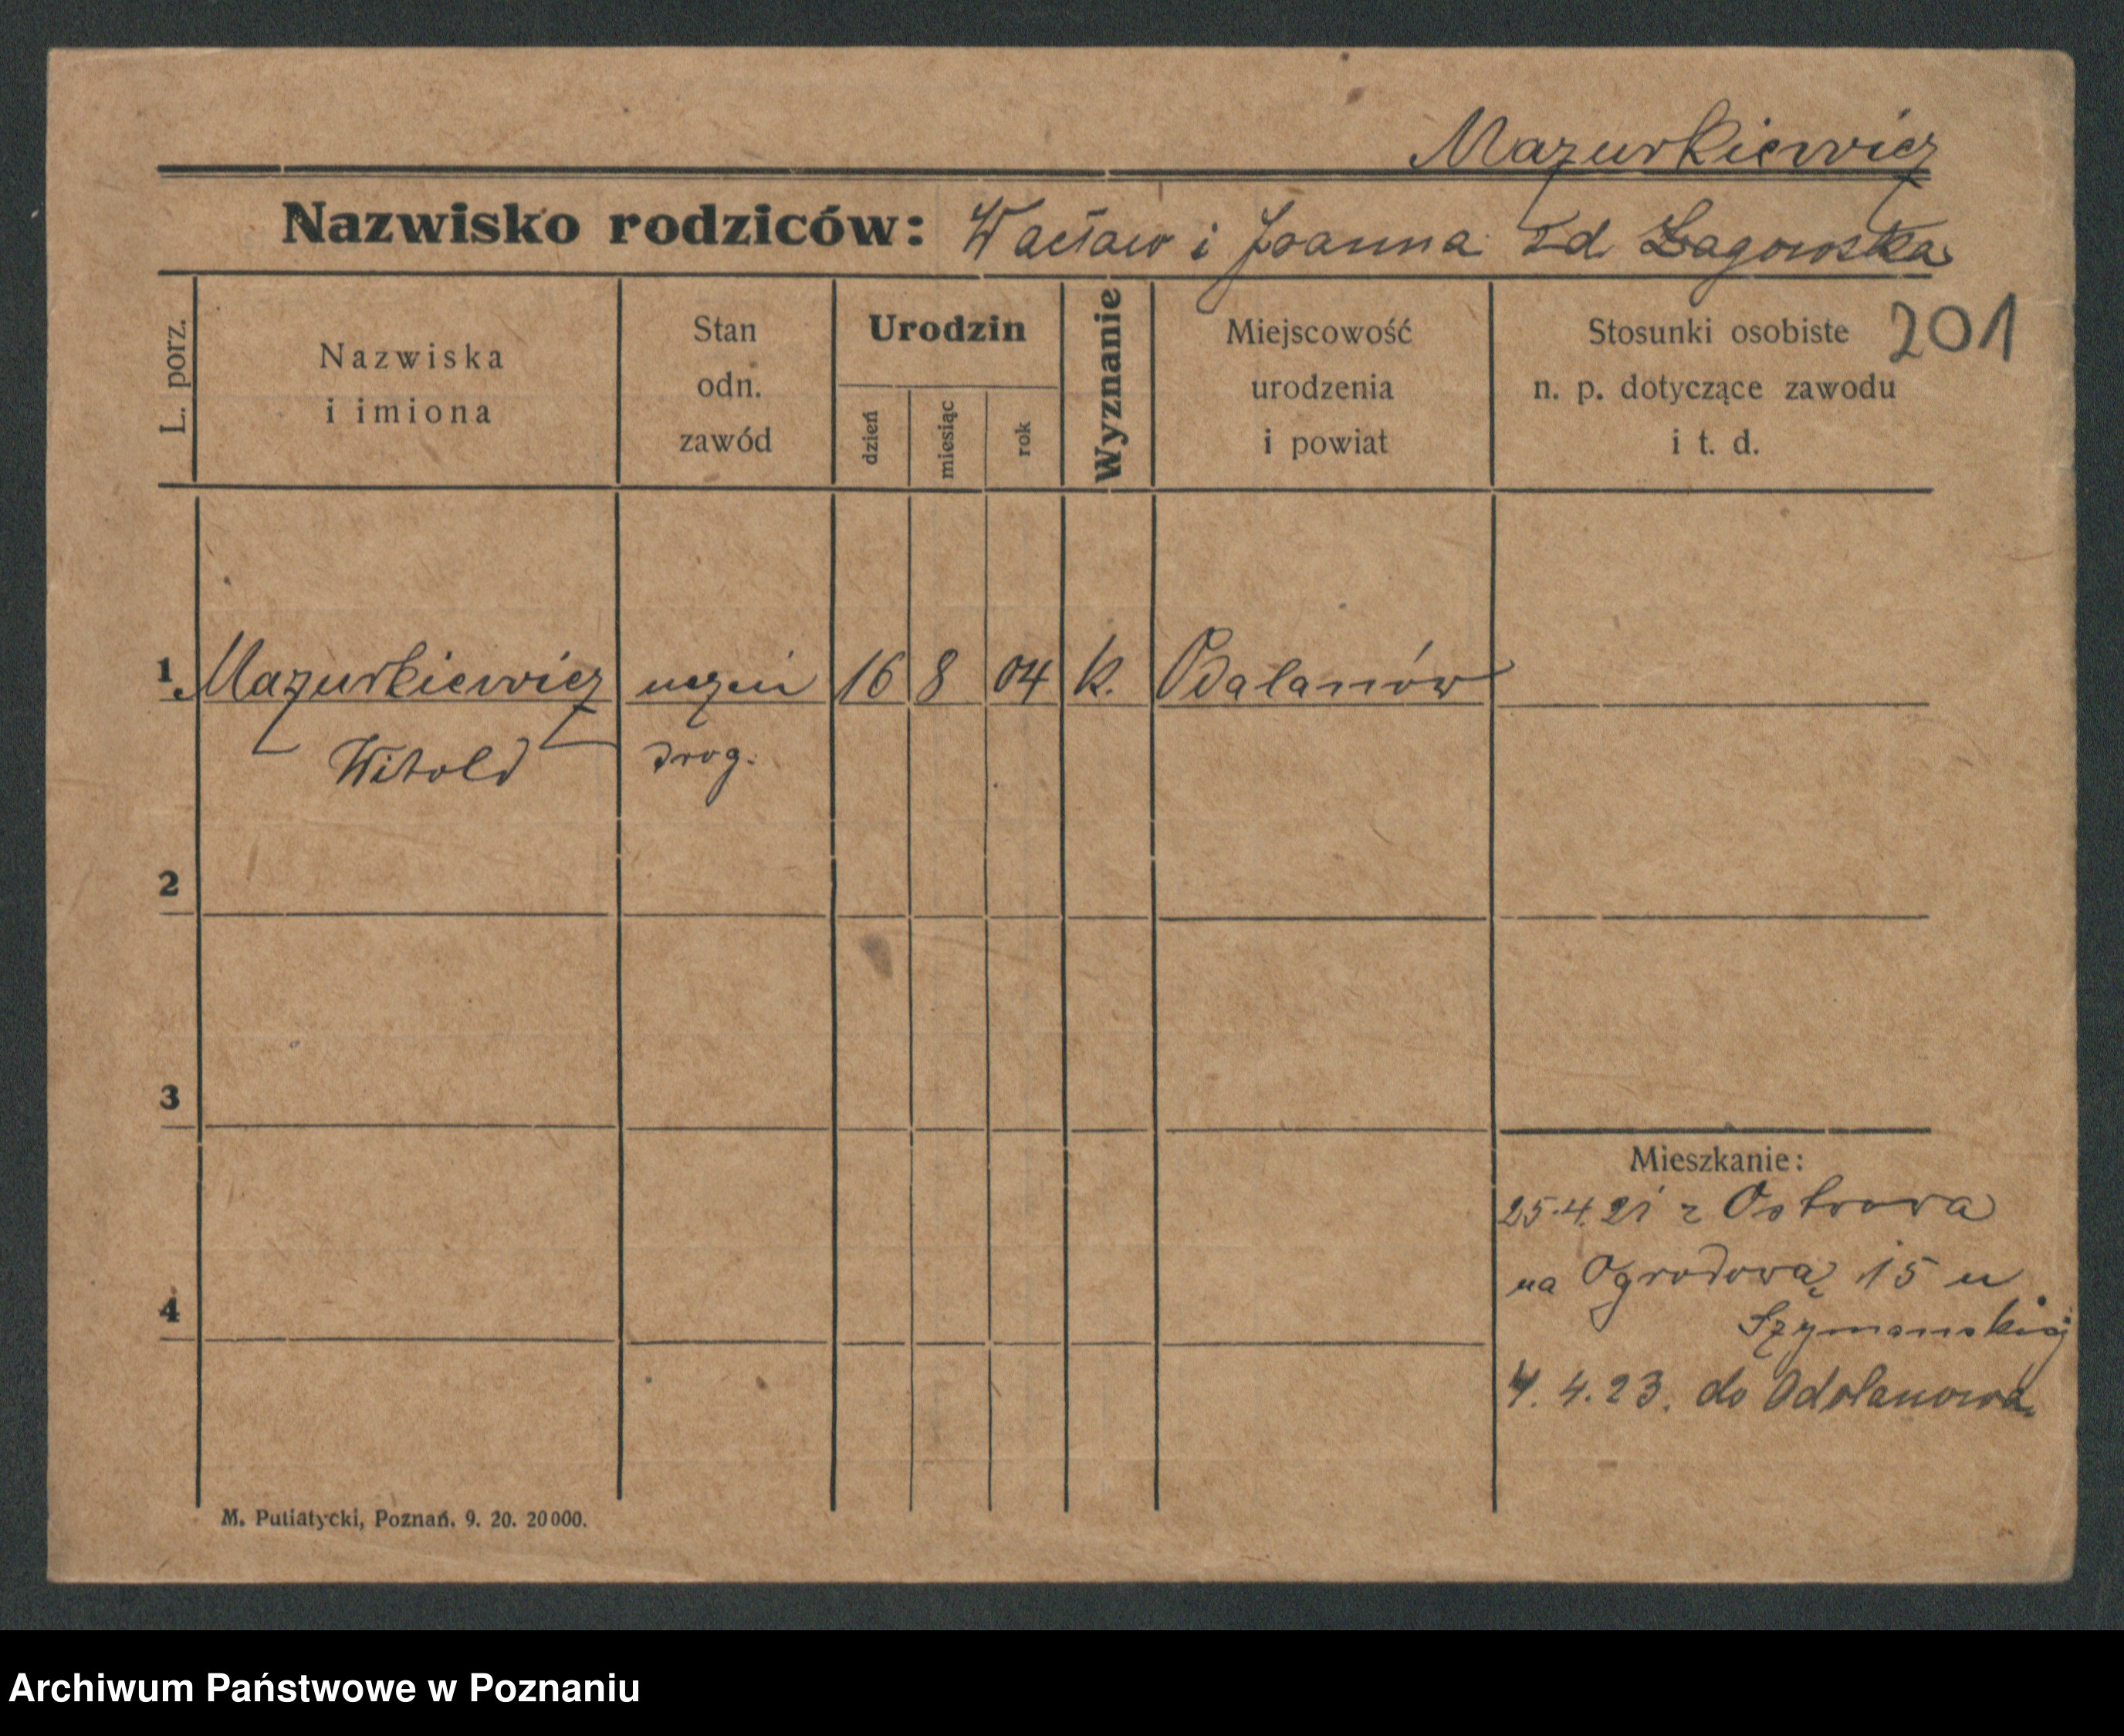 Mazurkiewicz
Nazwisko rodziców: Wacław i Joanna zd. Łagowska
201
L. porz.
Nazwiska
i imiona
Stan
odn.
zawód
Urodzin
dzień
miesiąc
rok
Wyznanie
Miejscowość
urodzenia
i powiat
Stosunki osobiste
n. p. dotyczące zawodu
i t. d.
1 Mazurkiewicz uczeń 16 8 04 k. Balanów
Witold drog.
2
3
4
Mieszkanie:
25.4.21 z Ostrowa
na Ogrodową 15 u
Szymanskiej
4.4.23. do Odolanowa
M. Putiatycki, Poznań. 9. 20. 20000.
Archiwum Państwowe w Poznaniu